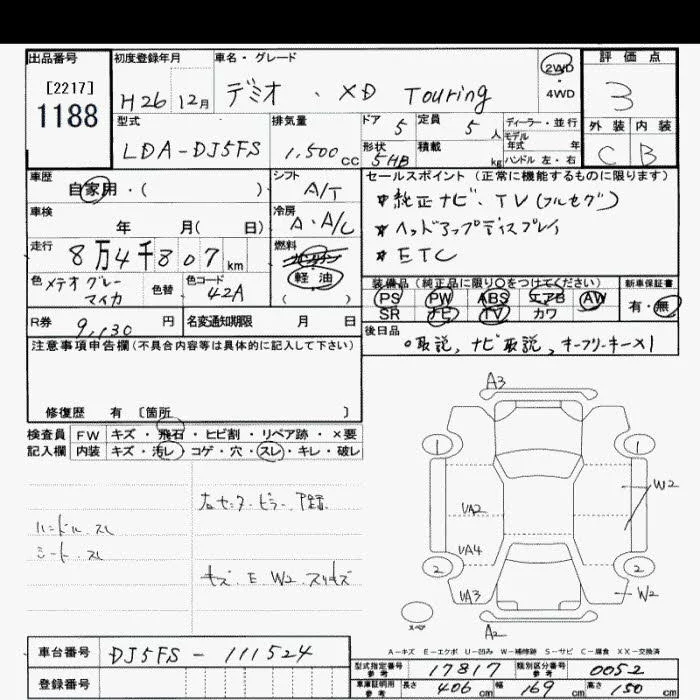 出品番号
[2217]
1188
初度登録年月
H26 12月
車名・グレード
デミオ・XD Touring
2WD・4WD
評価点
3
型式
LDA-DJ5FS
排気量
1,500cc
ドア 5
定員 5人
形状 5HB
積載 kg
ディーラー・並行
モデル年式 年
ハンドル 左・右
外装 内装
C B
車歴
自家用・( )
シフト
A/T
車検
年 月( 日)
冷房
A・A/C
走行
8万4千807km
燃料
軽油
( )
色
メテオグレーマイカ
色替
色コード
42A
R券
9,130円
名変通知期限 月 日
セールスポイント(正常に機能するものに限ります)
*純正ナビ・TV(フルセグ)
*ヘッドアップディスプレイ
*ETC
装備品(純正品に限り○をつけてください)
PS PW ABS エアB AW
SR ナビ TV カワ
新車保証書
有・無
後日品
○取説, ナビ取説, キーフリーキー×1
注意事項申告欄(不具合内容等は具体的に記入して下さい)
修復歴 有 〔箇所 〕
検査員記入欄
FW キズ・飛石・ヒビ割・リペア跡・×要
内装 キズ・汚レ・コゲ・穴・スレ・キレ・破レ
ハンドル スレ
シート スレ
右センターピラー
キズ・E W2
A3
1 1
UA2
W2
UA4
2 2
UA3
W2
スペア
A2
A-キズ E-エクボ U-凹み W-補修跡 S-サビ C-腐食 XX-交換済
車台番号
DJ5FS-111524
登録番号
型式指定番号 参考 17817
類別区分番号 参考 0052
車庫証明用 参考 長さ 406cm 幅 169cm 高さ 150cm